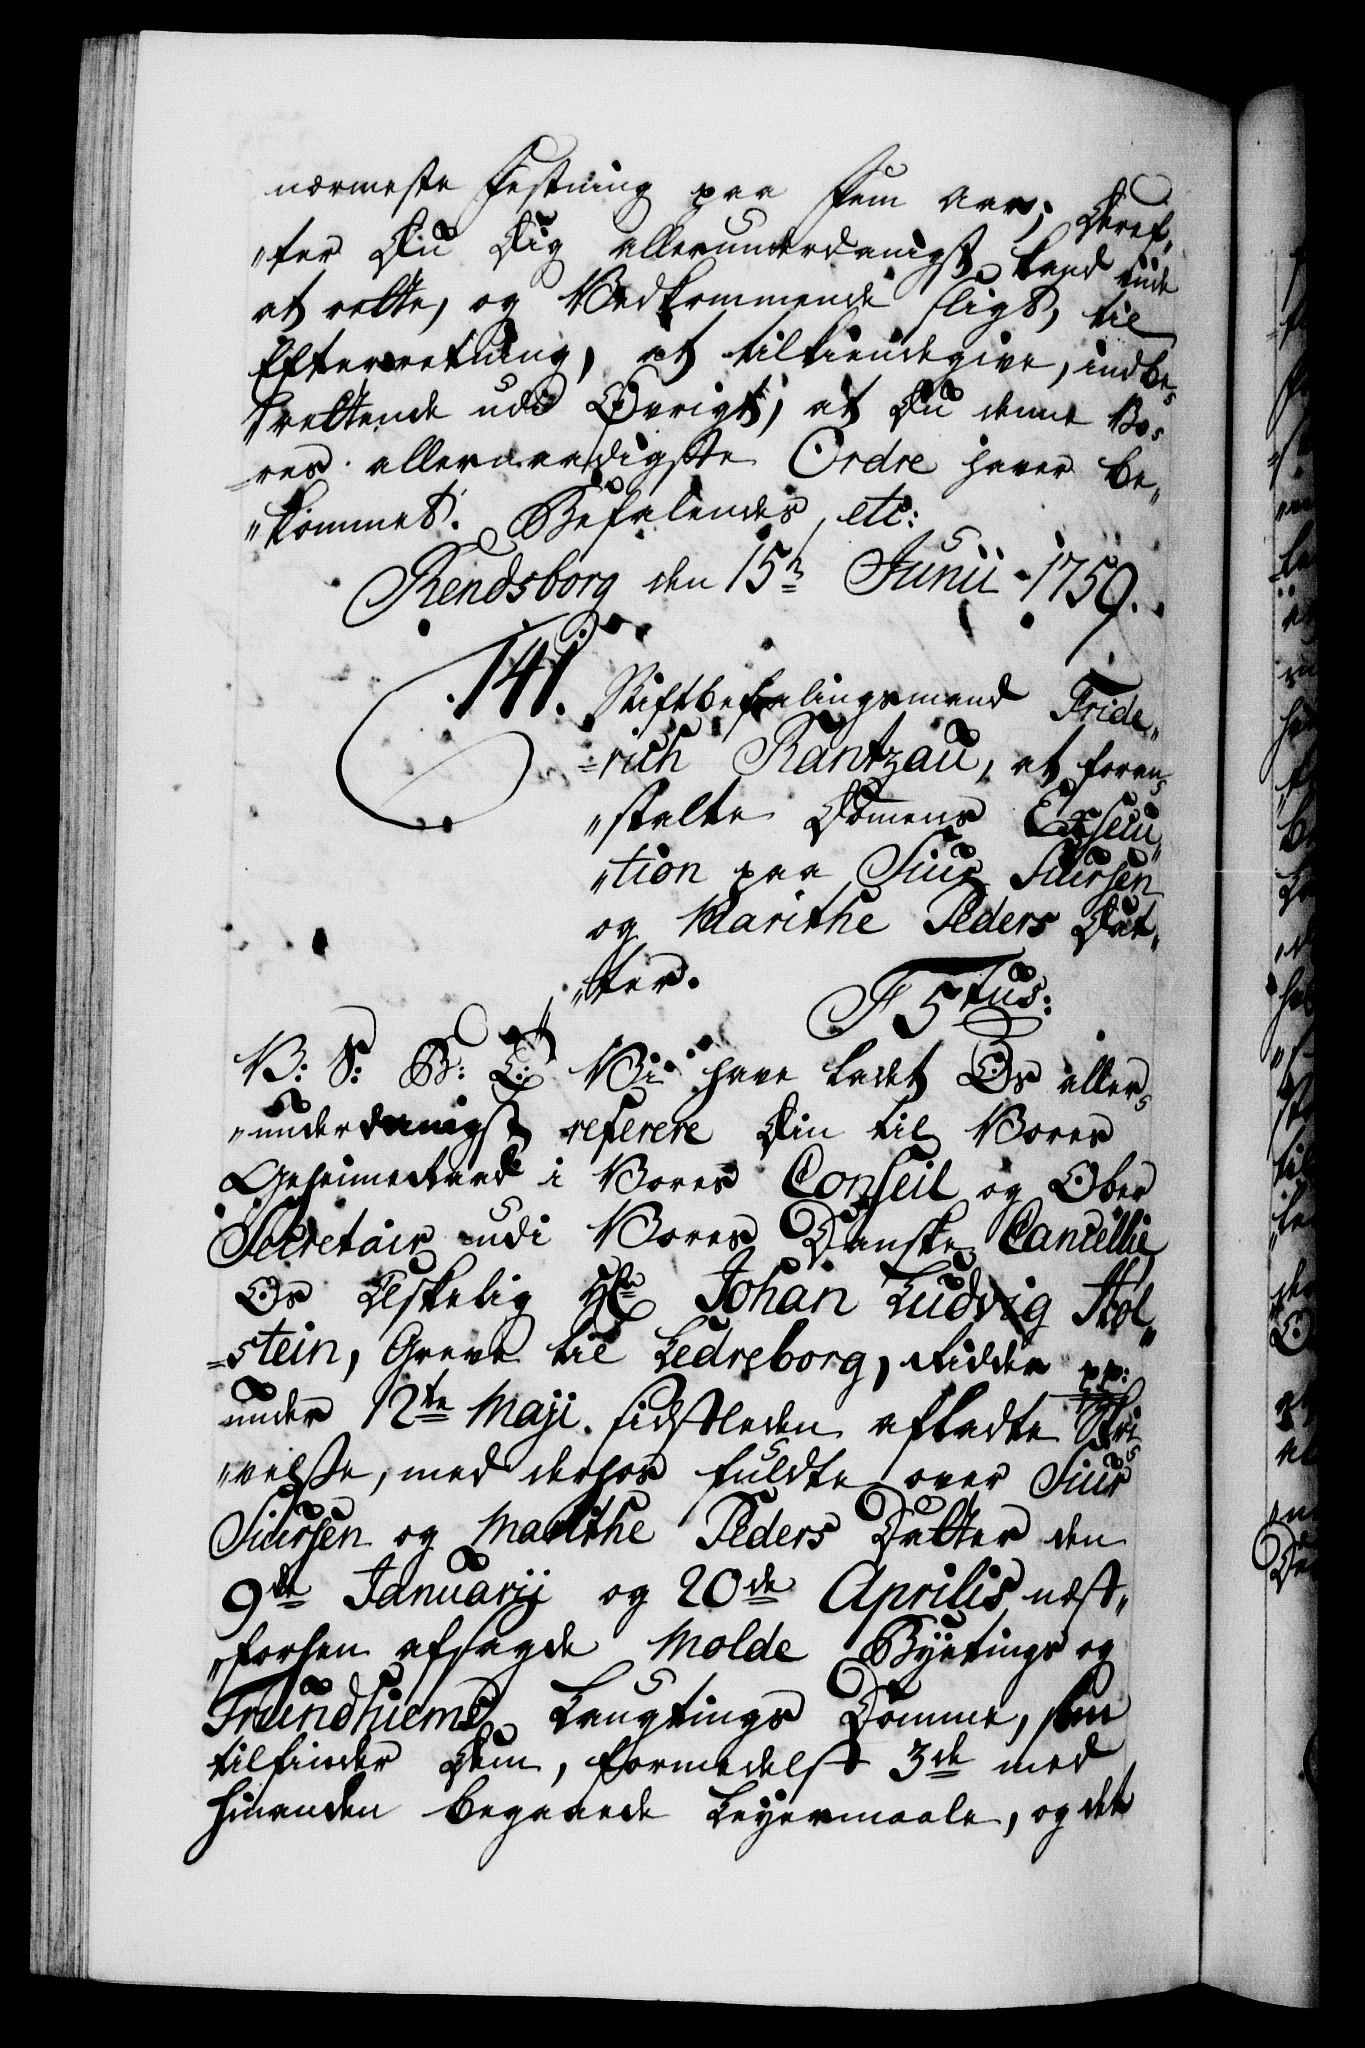 nærmeste Festning paa Fem Aar; Deref„
„ter Du Dig allerunderdanigst haver
at rette, og Vedkommende sligt, til
Efterretning, at tilkiendegive, indbe„
rettende udi Øvrigt, at Du denne Vo„
„res allernaadigste Ordre haver be„
„kommet. Befalendes etc:
Rendsborg den 15n Junii 1759.
141. Stiftbefalingsmand Fride„
„rich Rantzau, at foran„
„stalte Dommens Execu„
„tion paa Siur Siursen
og Marithe Peders Dat„
„ter.
F 5tus:
V: S: B: T: Vi have ladet Os aller„
„underdanigst referere Din til Vores
Geheimeraad i Vores Conseil og Ober
Secretair udi Vores Danske Cancellie
Os Elskelig Hr Johan Ludvig Hol„
„stein, Greve til Ledreborg, Ridder pp:
under 12te Maji sidstleden afladte Skri„
„velse, med derhos fulgte over Siur
Siursen og Marithe Peders Datter den
9de Januarii og 20de Aprilis næst„
„forhen afsagde Molde Byetings og
Trundhiems Laugtings Domme, som
tilfinder Dem, formedelst 3de med
hinanden begaaede Leyermaale, og det